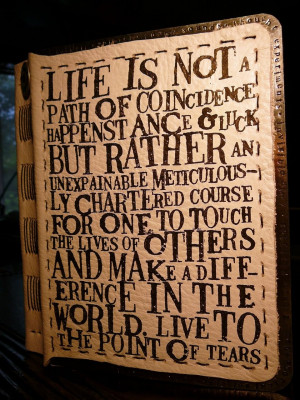 LIFE IS NOT A
PATH OF COINCIDENCE
HAPPENSTANCE & LUCK
BUT RATHER AN
UNEXPAINABLE METICULOUS-
LY CHARTERED COURSE
FOR ONE TO TOUCH
THE LIVES OF OTHERS
AND MAKE A DIFF-
ERENCE IN THE
WORLD. LIVE TO
THE POINT OF TEARS